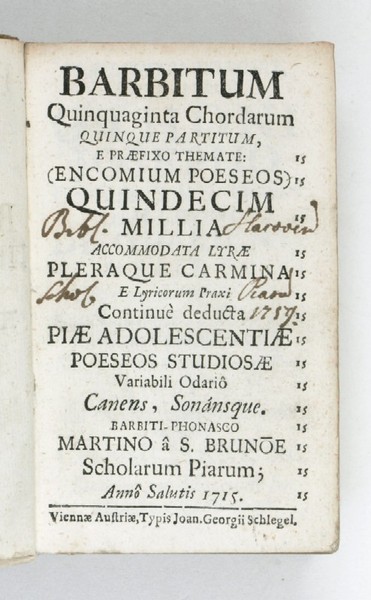 BARBITUM
Quinquaginta Chordarum
QUINQUE PARTITUM,
E PRÆFIXO THEMATE: 15
(ENCOMIUM POESEOS) 15
QUINDECIM 15
Bibl. MILLIA
ACCOMMODATA LYRÆ 15
PLERAQUE CARMINA 15
Schol. E Lyricorum Praxi Piar. 15
Continuè deducta 1757. 15
PIÆ ADOLESCENTIÆ 15
POESEOS STUDIOSÆ 15
Variabili Odariô 15
Canens, Sonánsque. 15
BARBITI-PHONASCO 15
MARTINO â S. BRUNŌE 15
Scholarum Piarum; 15
Annô Salutis 1715. 15
Viennæ Austriæ, Typis Joan. Georgii Schlegel.